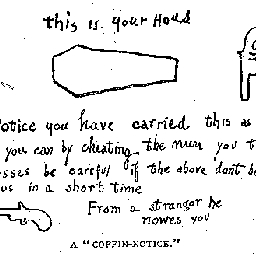 this is your House
Notice you have carried this as
you can by cheating the men you t
sses be careful if the above dont be
us in a short time
From a stranger he
nowes you
A "COFFIN-NOTICE."